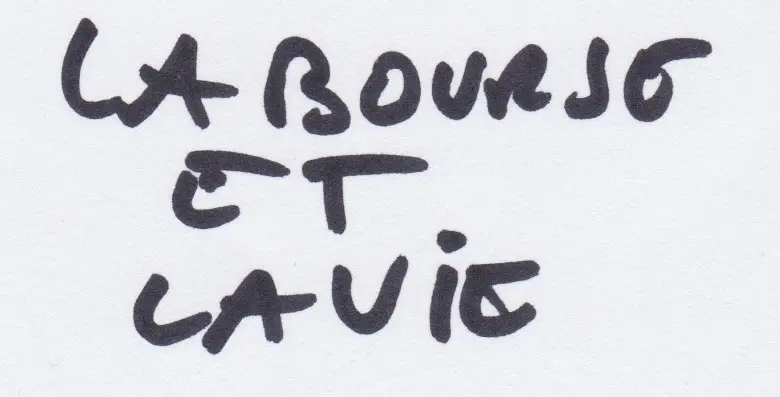 LA BOURSE
ET
LA ViE